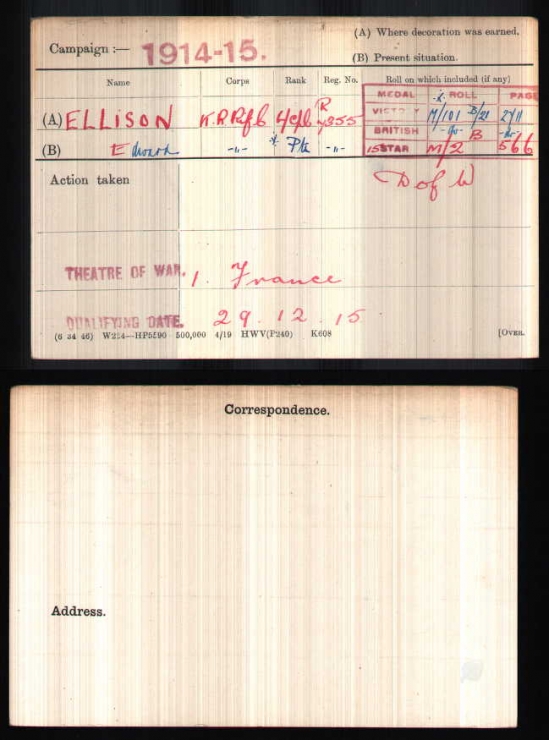 (A) Where decoration was earned.
Campaign :— 1914-15.
(B) Present situation.
Name Corps Rank Reg. No. Roll on which included (if any)
MEDAL ROLL PAGE
(A) ELLISON K.R.Rif.C. R VICTORY M/101 B/21 2711
(B) Edward -"- Pte -"- BRITISH -do- B -do-
15 STAR M/2 566
Action taken D of W
THEATRE OF WAR. 1. France
QUALIFYING DATE. 29.12.15
(6 34 46) W234—HP5590 500,000 4/19 HWV(P240) K608 [OVER.
Correspondence.
Address.